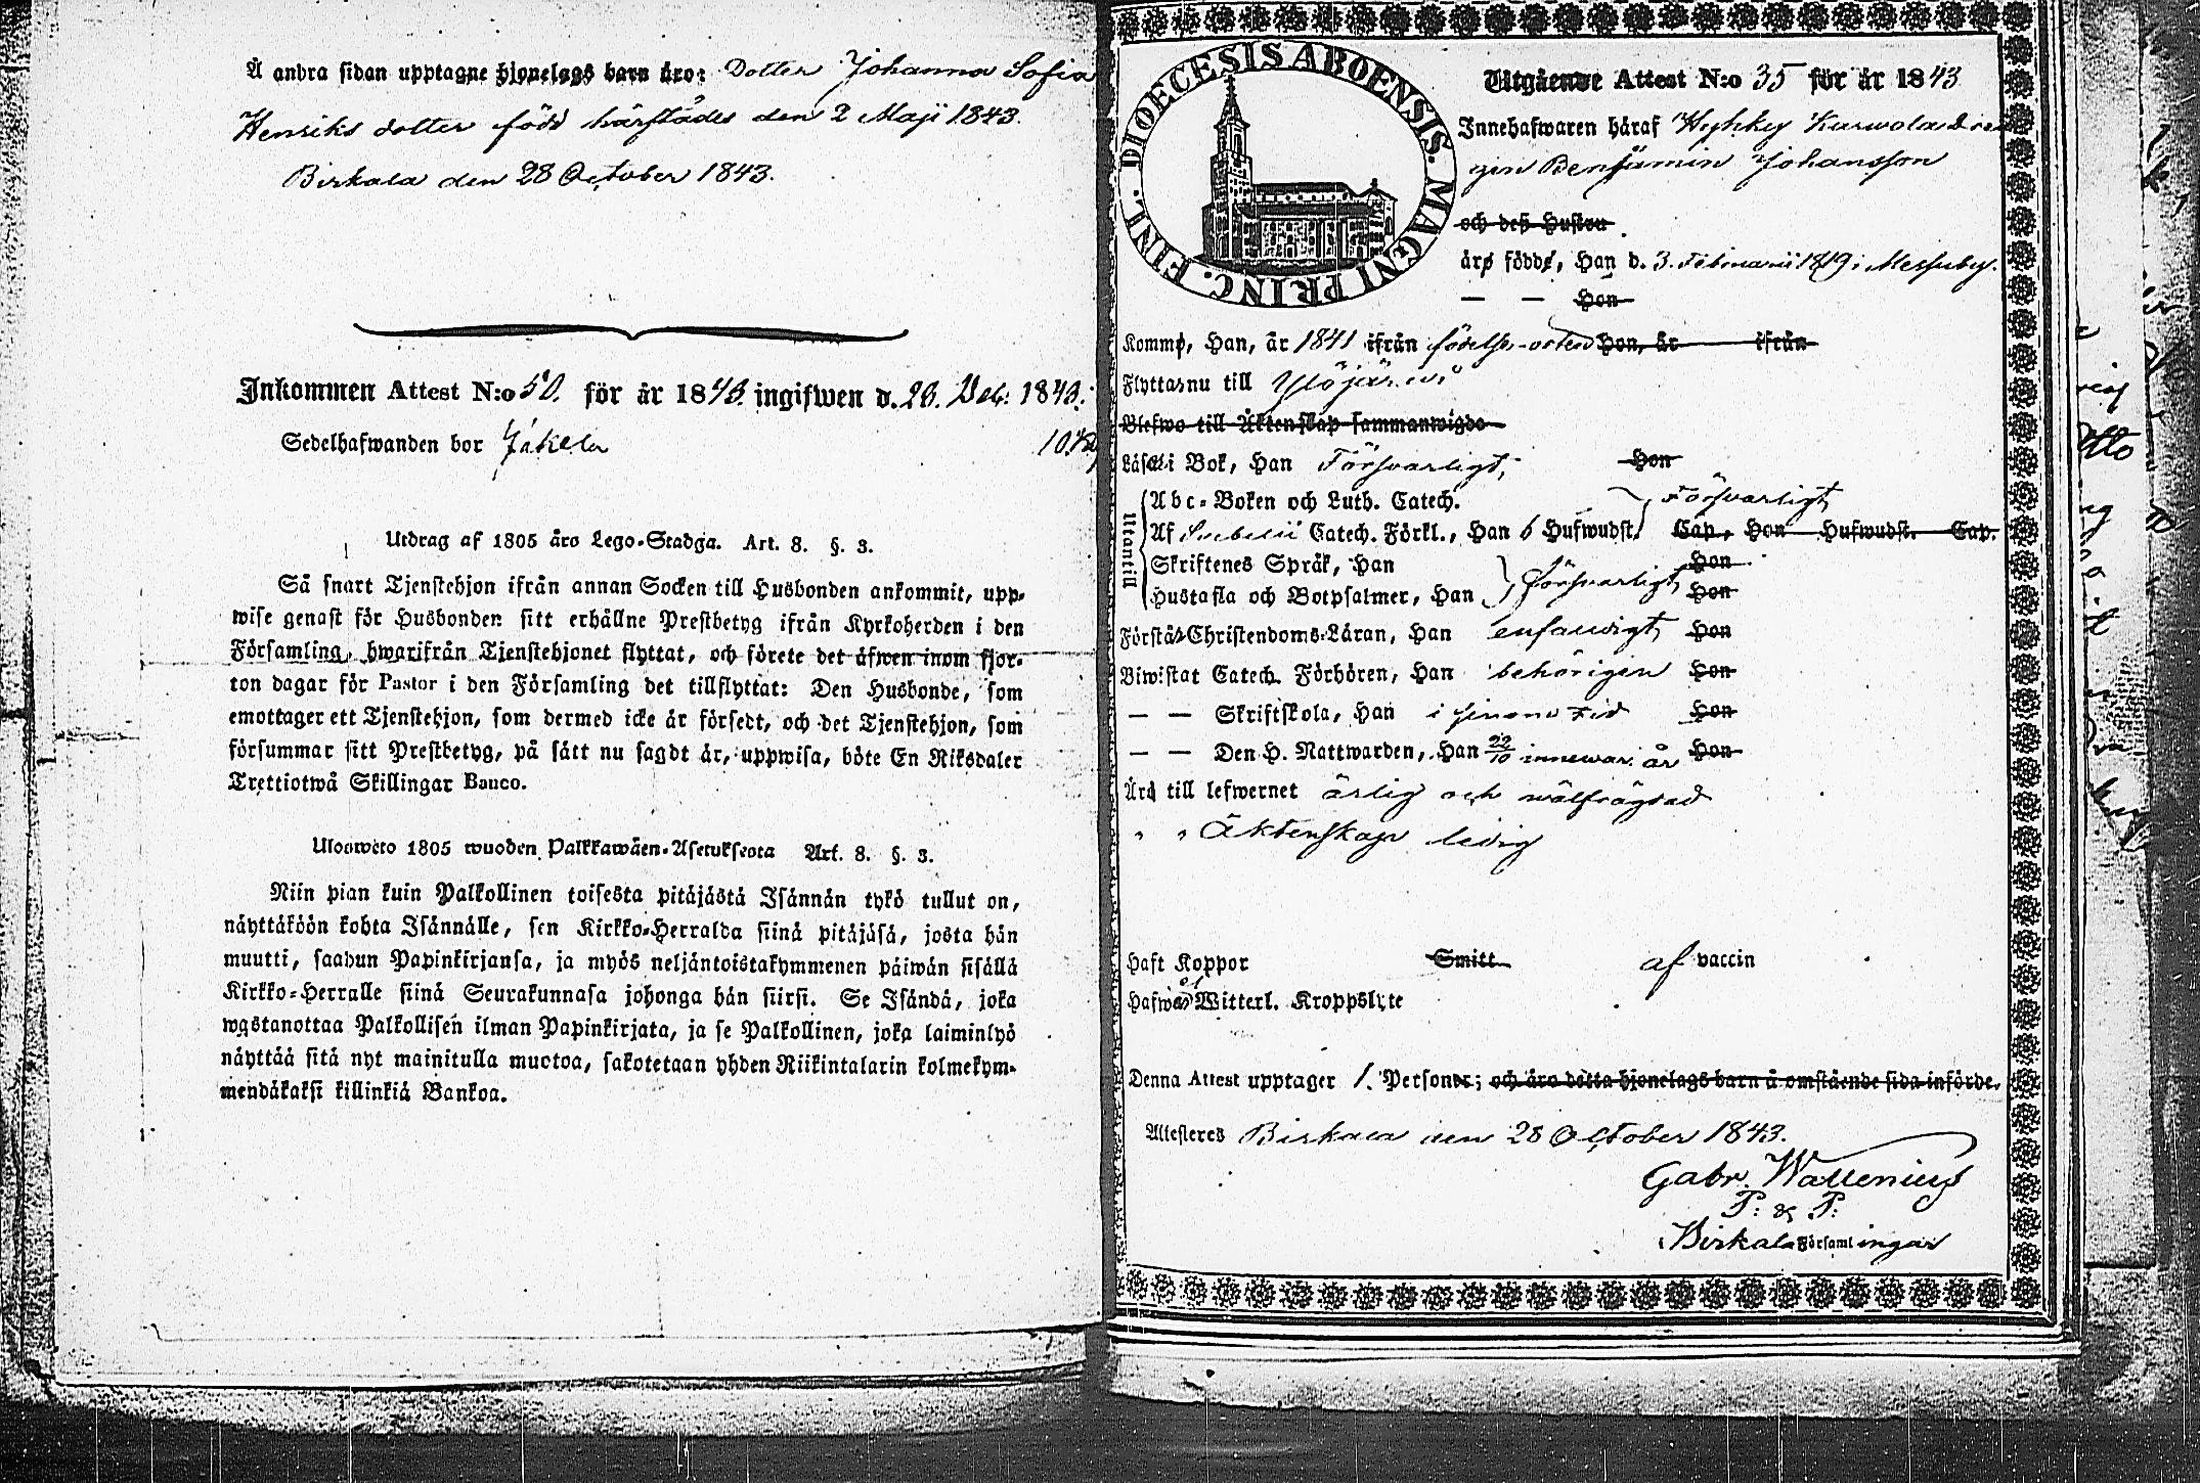 Å andra sidan upptagne hjonelags barn äro: Dotter Johanna Sofia
Henriks dotter född härstädes den 2 Maji 1843.
Birkala den 28 October 1843.
Inkommen Attest N:o 50. för år 1843. ingifwen d. 23. Dec: 1843.
Sedelhafwanden bor Jäkelä
Utdrag af 1805 års Lego-Stadga. Art. 8. §. 3.
Så snart Tjenstehjon ifrån annan Socken till Husbonden ankommit, upp-
wise genast för Husbonden sitt erhållne Prestbetyg ifrån Kyrkoherden i den
Församling, hwarifrån Tjenstehjonet flyttat, och förete det äfwen inom fjor-
ton dagar för Pastor i den Församling det tillflyttat: Den Husbonde, som
emottager ett Tjenstehjon, som dermed icke är försedt, och det Tjenstehjon, som
försummar sitt Prestbetyg, på sätt nu sagdt är, uppwisa, böte En Riksdaler
Trettiotwå Skillingar Banco.
Ulosweto 1805 wuoden Palkkawäen-Asetuksesta Art. 8. §. 3.
Niin pian kuin Palkollinen toisesta pitäjästä Isännän tykö tullut on,
näyttäköön kohta Isännälle, sen Kirkko-Herralda siinä pitäjäsä, josta hän
muutti, saadun Papinkirjansa, ja myös neljäntoistakymmenen päiwän sisällä
Kirkko-Herralle siinä Seurakunnasa johonga hän siirsi. Se Isändä, joka
wastanottaa Palkollisen ilman Papinkirjata, ja se Palkollinen, joka laiminlyö
näyttää sitä nyt mainitulla muotoa, sakotetaan yhden Riikintalarin kolmekym-
mendäkaksi killinkiä Bankoa.
DIOECESIS ABOENSIS. MAGNI PRINC. FINL.
Utgående Attest N:o 35 för år 1843
Innehafwaren häraf Hyhky Karwola Dren
gen Benjamin Johansson
och deß Hustru
äro födde, Han d. 3. Februarii 1819 i Messuby.
— — Hon
Kommo, Han, år 1841 ifrån födelse-orten Hon, år ifrån
Flyttar nu till Ylöjärvi
Blefwo till Äktenskap sammanwigde
Läser i Bok, Han Försvarligt, Hon
Utantill
Abc-Boken och Luth. Catech. Försvarligt
Af Svebelii Catech. Förkl., Han 6 Hufwudst. Cap., Hon Hufwudst. Cap.
Skriftenes Språk, Han Hon
Hustafla och Botpsalmer, Han försvarligt, Hon
Förstår Christendoms-Läran, Han enfaldigt, Hon
Biwistat Catech. Förhören, Han behörigen Hon
— — Skriftskola, Han i sinom tid Hon
— — Den H. Nattwarden, Han 22/10 innewar. år Hon
Ärd till lefwernet ärlig och wälfrägdad
" " Äktenskap ledig
Haft Koppor Smitt af vaccin
Hafwer ej Witterl. Kroppslyte
Denna Attest upptager 1. Person; och äro detta hjonelags barn å omstående sida införde.
Attesteras Birkala den 28 October 1843.
Gabr. Wallenius
P: & P:
i Birkala Församlingar